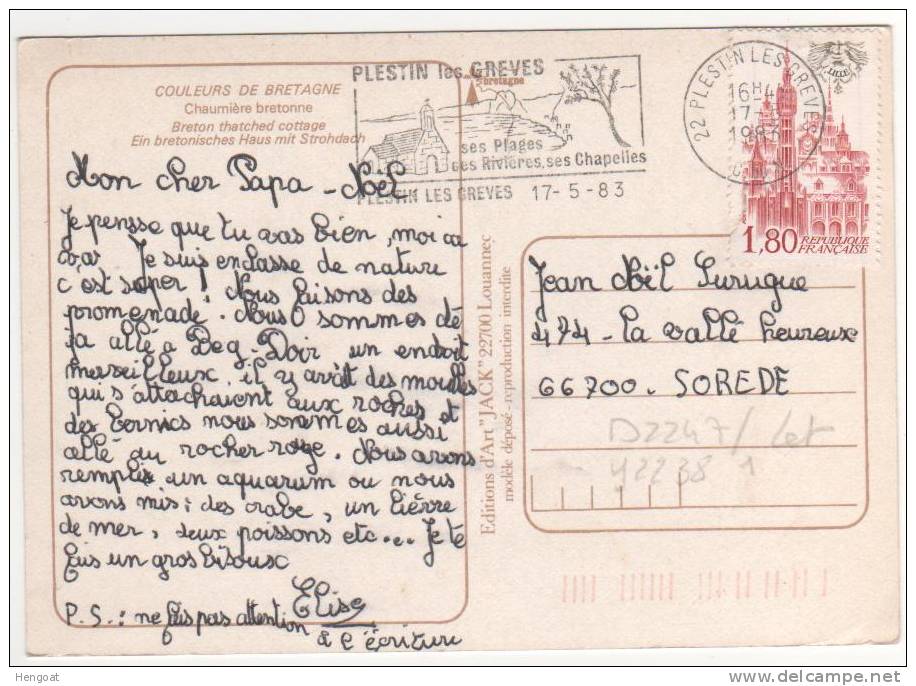 COULEURS DE BRETAGNE
Chaumière bretonne
Breton thatched cottage
Ein bretonisches Haus mit Strohdach
PLESTIN les GREVES
bretagne
ses Plages
ses Rivières, ses Chapelles
PLESTIN LES GREVES 17-5-83
22 PLESTIN LES GREVES
16H4
17-5
1983
LILLE
1,80 REPUBLIQUE
FRANÇAISE
Mon cher Papa-Noël
Je pensse que tu vas bien, moi ca
vas. Je suis en classe de nature
c'est super! Nous faisons des
promenade. Nous sommes dé
ja allé a Beg-Doir un endroit
merveilleux, il y avait des moulles
qui s'attachaient aux roches et
des bernics nous sommes aussi
allé au rocher rouge. Nous avons
remplis un aquarum ou nous
avons mis: des crabe, un lièvre
de mer, deux poissons etc... Je te
fais un gros bisoux
Elise
P.S.: ne fais pas attention
à l'écriture
Editions d'Art "JACK" 22700 Louannec
modèle déposé - reproduction interdite
Jean Noël Surugue
474 - la vallé heureux
66700. SOREDE
D2247/Let
Y2238 1
Hengoat
www.delcampe.net